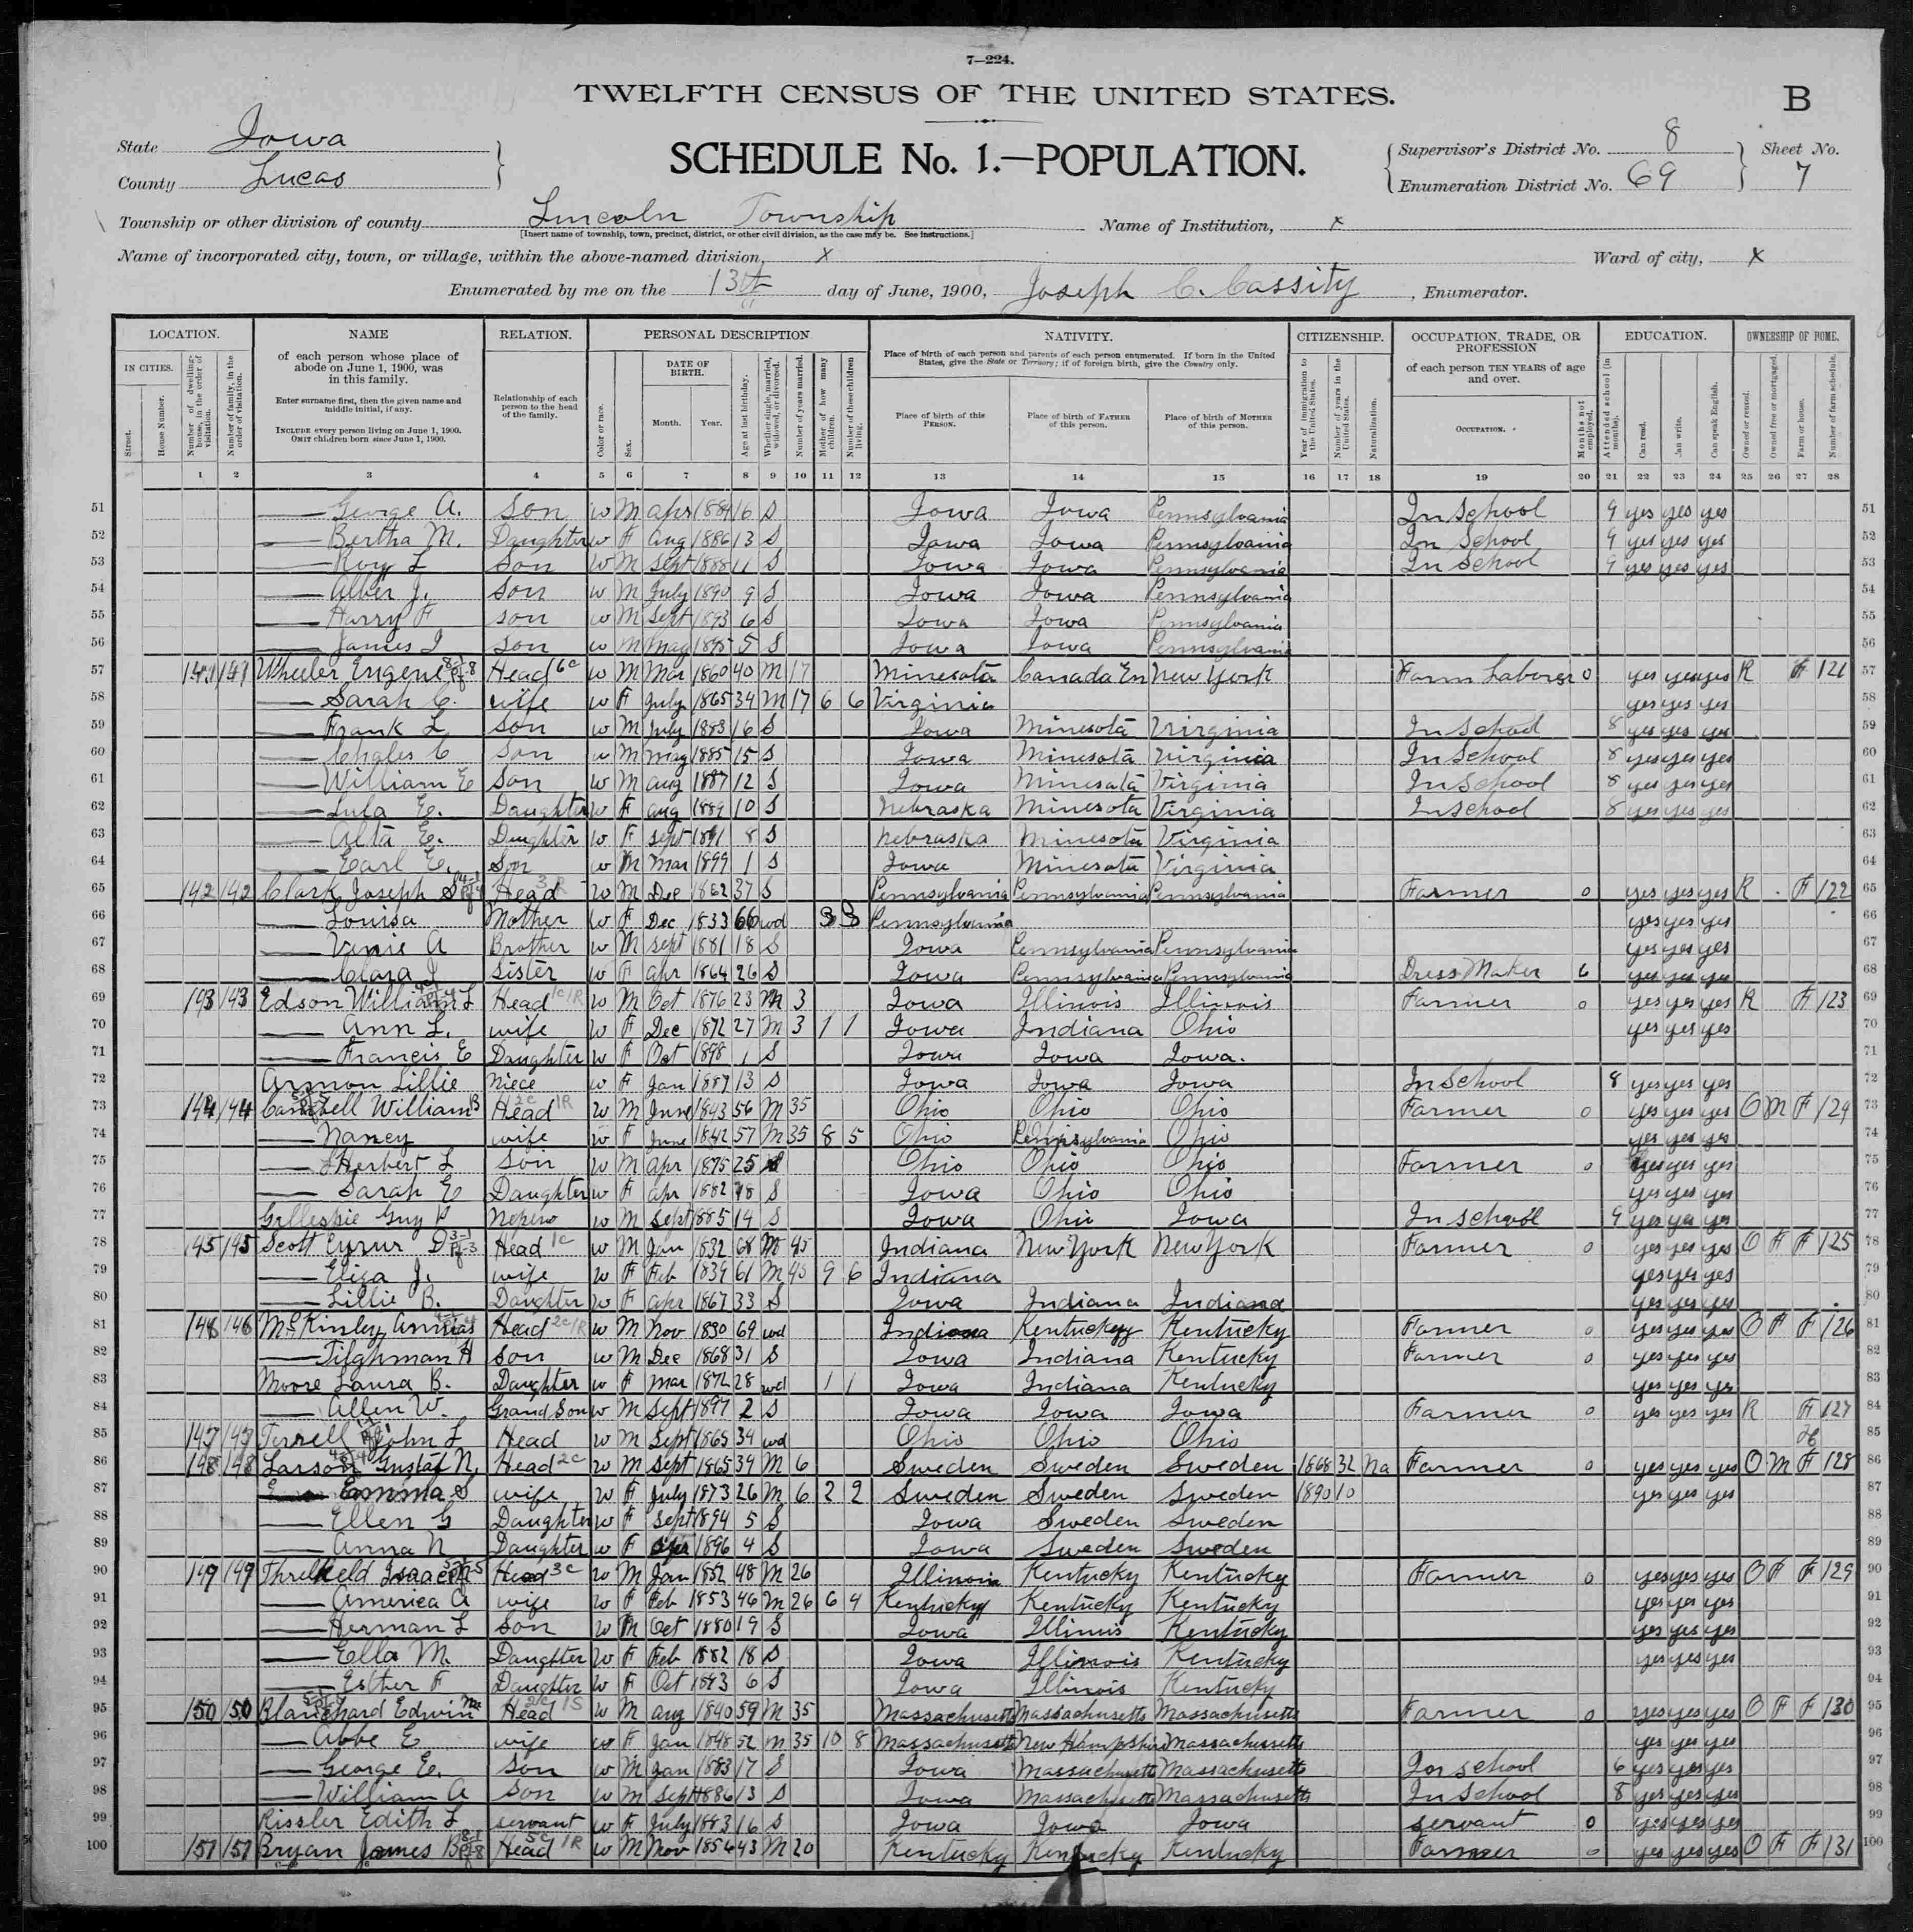 7—224.
TWELFTH CENSUS OF THE UNITED STATES.
B
State Iowa
County Lucas
SCHEDULE No. 1.—POPULATION.
Supervisor's District No. 8
Enumeration District No. 69
Sheet No. 7
Township or other division of county Lincoln Township
[Insert name of township, town, precinct, district, or other civil division, as the case may be. See instructions.]
Name of Institution, x
Name of incorporated city, town, or village, within the above-named division, x
Ward of city, x
Enumerated by me on the 13th day of June, 1900, Joseph C. Cassity, Enumerator.
LOCATION. NAME RELATION. PERSONAL DESCRIPTION NATIVITY. CITIZENSHIP. OCCUPATION, TRADE, OR PROFESSION EDUCATION. OWNERSHIP OF HOME.
IN CITIES.
Street.
House Number.
Number of dwelling-house, in the order of visitation.
Number of family, in the order of visitation.
of each person whose place of abode on June 1, 1900, was in this family.
Enter surname first, then the given name and middle initial, if any.
INCLUDE every person living on June 1, 1900.
OMIT children born since June 1, 1900.
Relationship of each person to the head of the family.
Color or race.
Sex.
DATE OF BIRTH.
Month. Year.
Age at last birthday.
Whether single, married, widowed, or divorced.
Number of years married.
Mother of how many children.
Number of these children living.
Place of birth of each person and parents of each person enumerated. If born in the United States, give the State or Territory; if of foreign birth, give the Country only.
Place of birth of this PERSON.
Place of birth of FATHER of this person.
Place of birth of MOTHER of this person.
Year of immigration to the United States.
Number of years in the United States.
Naturalization.
of each person TEN YEARS of age and over.
OCCUPATION.
Months not employed.
Attended school (in months).
Can read.
Can write.
Can speak English.
Owned or rented.
Owned free or mortgaged.
Farm or house.
Number of farm schedule.
1 2 3 4 5 6 7 8 9 10 11 12 13 14 15 16 17 18 19 20 21 22 23 24 25 26 27 28
51 — George A. Son W M Apr 1884 16 S Iowa Iowa Pennsylvania In School 9 yes yes yes 51
52 — Bertha M. Daughter W F Aug 1886 13 S Iowa Iowa Pennsylvania In School 9 yes yes yes 52
53 — Roy L Son W M Sept 1888 11 S Iowa Iowa Pennsylvania In School 9 yes yes yes 53
54 — Alber J. Son W M July 1890 9 S Iowa Iowa Pennsylvania 54
55 — Harry F Son W M Sept 1893 6 S Iowa Iowa Pennsylvania 55
56 — James I Son W M May 1895 5 S Iowa Iowa Pennsylvania 56
57 141 141 Wheeler Eugene Head W M Mar 1860 40 M 17 Minesota Canada En New York Farm Laborer 0 yes yes yes R F 121 57
58 — Sarah C. wife W F July 1865 34 M 17 6 6 Virginia yes yes yes 58
59 — Frank L Son W M July 1883 16 S Iowa Minesota Virginia In School 8 yes yes yes 59
60 — Chales C Son W M May 1885 15 S Iowa Minesota Virginia In School 8 yes yes yes 60
61 — William E Son W M Aug 1887 12 S Iowa Minesota Virginia In School 8 yes yes yes 61
62 — Lula E. Daughter W F Aug 1889 10 S Nebraska Minesota Virginia In School 8 yes yes yes 62
63 — Alta E. Daughter W F Sept 1891 8 S Nebraska Minesota Virginia 63
64 — Earl E. Son W M Mar 1899 1 S Iowa Minesota Virginia 64
65 142 142 Clark Joseph S Head W M Dec 1862 37 S Pennsylvania Pennsylvania Pennsylvania Farmer 0 yes yes yes R F 122 65
66 — Louisa Mother W F Dec 1833 66 wd 3 3 Pennsylvania yes yes yes 66
67 — A Brother W M Sept 1881 18 S Iowa Pennsylvania Pennsylvania yes yes yes 67
68 — Clara J Sister W F Apr 1864 26 S Iowa Pennsylvania Pennsylvania Dress Maker 6 yes yes yes 68
69 143 143 Edson William L Head W M Oct 1876 23 M 3 Iowa Illinois Illinois Farmer 0 yes yes yes R F 123 69
70 — Ann L. wife W F Dec 1872 27 M 3 1 1 Iowa Indiana Ohio yes yes yes 70
71 — Francis E Daughter W F Oct 1898 1 S Iowa Iowa Iowa. 71
72 Armon Lillie Niece W F Jan 1887 13 S Iowa Iowa Iowa In School 8 yes yes yes 72
73 144 144 William B Head W M June 1843 56 M 35 Ohio Ohio Ohio Farmer 0 yes yes yes O M F 124 73
74 — Nancy wife W F June 1842 57 M 35 8 5 Ohio Pennsylvania Ohio yes yes yes 74
75 — Herbert L Son W M Apr 1875 25 S Ohio Ohio Ohio Farmer 0 yes yes yes 75
76 — Sarah E Daughter W F Apr 1882 18 S Iowa Ohio Ohio yes yes yes 76
77 Gillespie Guy P Nephew W M Sept 1885 14 S Iowa Ohio Iowa In school 9 yes yes yes 77
78 145 145 Scott D Head W M Jan 1832 68 M 45 Indiana New York New York Farmer 0 yes yes yes O F F 125 78
79 — Eliza J. wife W F Feb 1839 61 M 45 9 6 Indiana yes yes yes 79
80 — Lillie B. Daughter W F Apr 1867 33 S Iowa Indiana Indiana yes yes yes 80
81 146 146 McKinley Head W M Nov 1830 69 wd Indiana Kentucky Kentucky Farmer 0 yes yes yes O F F 126 81
82 — Tilghman H Son W M Dec 1868 31 S Iowa Indiana Kentucky Farmer 0 yes yes yes 82
83 Moore Laura B. Daughter W F Mar 1872 28 wd 1 1 Iowa Indiana Kentucky yes yes yes 83
84 — Allen W. Grand Son W M Sept 1897 2 S Iowa Iowa Iowa Farmer 0 yes yes yes R F 127 84
85 147 147 Terrell John L Head W M Sept 1865 34 wd Ohio Ohio Ohio H 85
86 148 148 Larson Gustaf N. Head W M Sept 1865 34 M 6 Sweden Sweden Sweden 1868 32 Na Farmer 0 yes yes yes O M F 128 86
87 — Emma S wife W F July 1873 26 M 6 2 2 Sweden Sweden Sweden 1890 10 yes yes yes 87
88 — Ellen G Daughter W F Sept 1894 5 S Iowa Sweden Sweden 88
89 — Anna N Daughter W F Apr 1896 4 S Iowa Sweden Sweden 89
90 149 149 Threlkeld Isaac Head W M Jan 1852 48 M 26 Illinois Kentucky Kentucky Farmer 0 yes yes yes O F F 129 90
91 — America A wife W F Feb 1853 46 M 26 6 4 Kentucky Kentucky Kentucky yes yes yes 91
92 — Herman L Son W M Oct 1880 19 S Iowa Illinois Kentucky yes yes yes 92
93 — Ella M. Daughter W F Feb 1882 18 S Iowa Illinois Kentucky yes yes yes 93
94 — Esther F Daughter W F Oct 1893 6 S Iowa Illinois Kentucky 94
95 150 150 Blanchard Edwin Head W M Aug 1840 59 M 35 Massachusetts Massachusetts Massachusetts Farmer 0 yes yes yes O F F 130 95
96 — Abbe E wife W F Jan 1848 52 M 35 10 8 Massachusetts New Hampshire Massachusetts yes yes yes 96
97 — George E. Son W M Jan 1883 17 S Iowa Massachusetts Massachusetts In school 6 yes yes yes 97
98 — William A Son W M Sept 1886 13 S Iowa Massachusetts Massachusetts In School 8 yes yes yes 98
99 Rissler Edith L servant W F July 1883 16 S Iowa Iowa Iowa servant 0 yes yes yes 99
100 151 151 Bryan James B Head W M Nov 1856 43 M 20 Kentucky Kentucky Kentucky Farmer 0 yes yes yes O F F 131 100